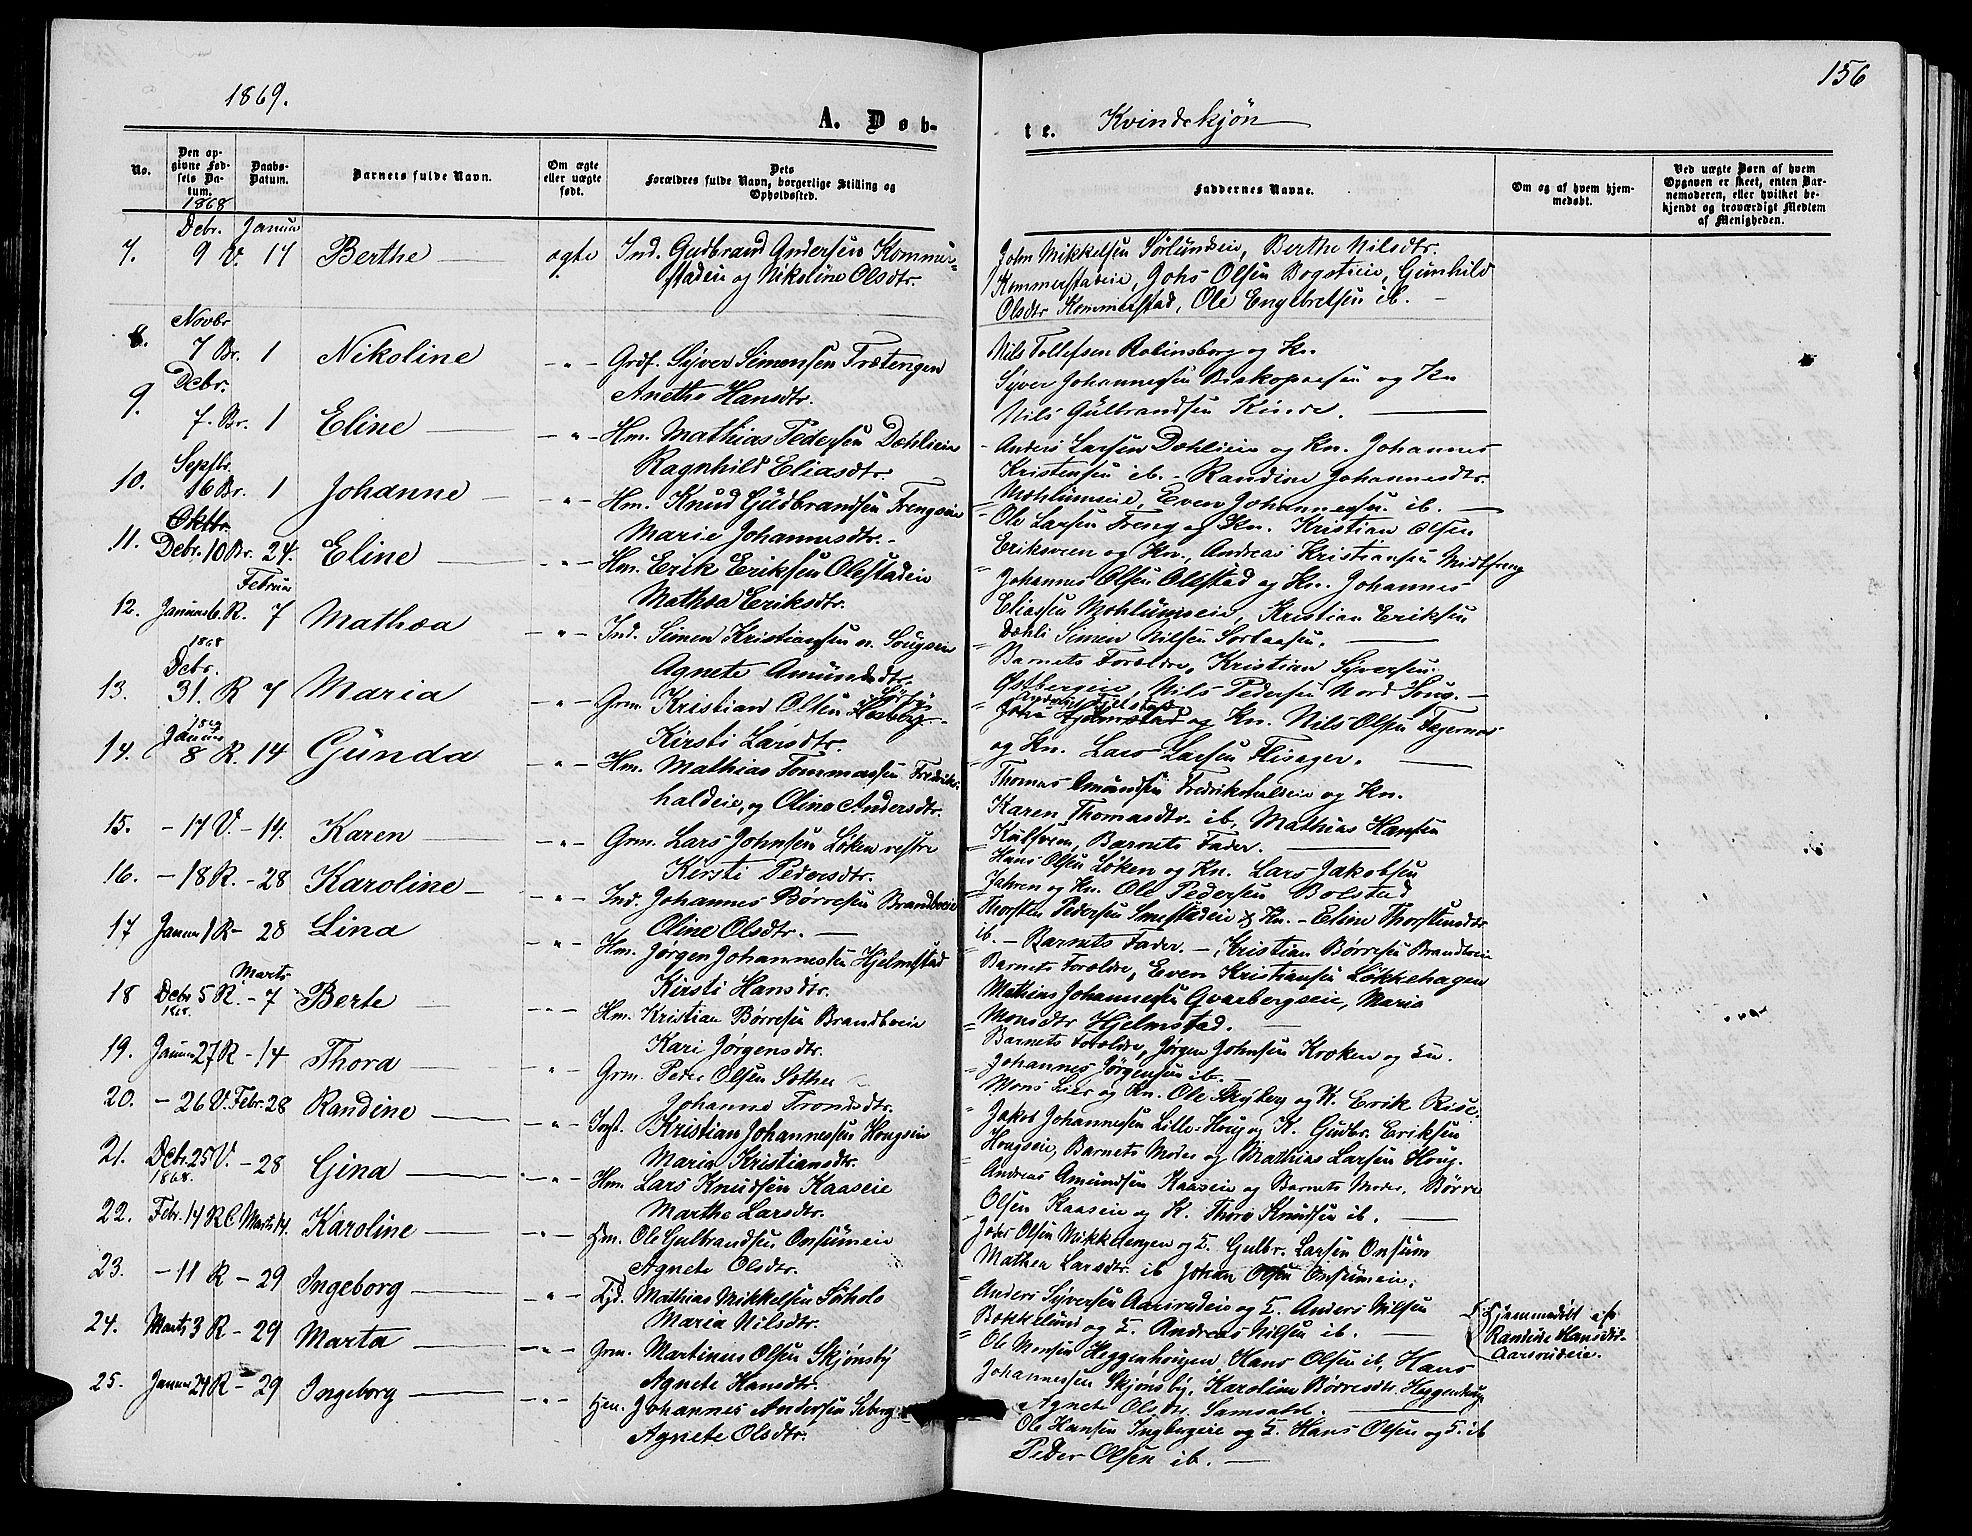 156
1869.
A. Døb-
te. Kvindekjøn
No.
Den opgivne Fødsels Datum.
Daabs-Datum.
Barnets fulde Navn.
Om ægte eller uægte født.
Dets Forældres fulde Navn, borgerlige Stilling og Opholdssted.
Faddernes Navne.
Om og af hvem hjemmedøbt.
Ved uægte Børn af hvem Opgaven er skeet, enten Barnemoderen, eller hvilket bekjendt og troværdigt Medlem af Menigheden.
1868
Debr. Januar
7. 9 V. 17 Berthe ægte Ind. Gudbrand Andersen Kommer-
stadeie og Nikoline Olsdtr.
John Mikkelsen Sørlundeie, Berthe Nilsdtr.
Kommerstadeie, Johs Olsen Bogstieie, Gunhild
Olsdtr Kommerstad, Ole Engebretsen ib.
Novbr
8. 7 Br. 1 Nikoline - " - Grdf. Syver Simensen Trætengen
Anethe Hansdtr.
Nils Tollefsen Robinsborg og Kn.
Syver Johannessen Biskopaasen og Kn
Nils Gulbrandsen Kinde.
Debr.
9. 7. Br. 1 Eline - " - Hm. Mathias Pedersen Dæhlieie
Ragnhild Eliasdtr.
Anders Larsen Dæhlieie og Kn. Johannes
Kristensen ib. - Randine Johannesdtr.
Mæhlumseie, Even Johannesen ib.
Septbr.
10. 16 Br. 1 Johanne - " - Hm. Knud Gudbrandsen Frengseie
Marie Johannesdtr.
Ole Larsen Freng og Kn. Kristian Olsen
Eriksveen og Kn., Andreas Kristiansen Midtfreng
Oktbr.
11. Debr. 10 Br. 24. Eline - " - Hm. Erik Eriksen Olestadeie
Mathea Eriksdtr.
Johannes Olsen Olestad og Kn. Johannes
Eliassen Mæhlumseie, Kristian Eriksen
Dæhli Simen Nilsen Sorlaasen.
Februar
12. Januar 6. R. 7 Mathea - " - Ind. Simen Kristiansen n. Sougseie
Agnete Amundsdtr.
Barnets Forældre, Kristian Syversen
Østbergeie, Nils Pedersen Nord Soug.
1868
Debr.
13. 31. R 7 Maria - " - Grm. Kristian Olsen Hosberg
Kirsti Larsdtr.
Johs Hjelmstad og Kn. Nils Olsen Fagernæs
og Kn. Lars Larsen Flisager.
1869
Januar
14. 8 R. 14 Gunda - " - Hm. Mathias Tommassen Fredriks-
haldeie, og Oline Andersdtr.
Thomas Amundsen Fredrikshaldeie og Kn.
Karen Thomasdtr. ib, Mathias Hansen
Kulsveen, Barnets Fader.
15. - 17 V. - 14. Karen - " - Grm. Lars Johnsen Løken vestre
Kirsti Pedersdtr.
Hans Olsen Løken og Kn. Lars Jakobsen
Jahren og Kn. Ole Pedersen Bolstad
16. - 18 R. - 28 Karoline - " - Ind. Johannes Børresen Brandboeie
Oline Olsdtr.
Thorsten Pedersen Smestadeie & Kn. - Eline Thorstensdtr
ib. - Barnets Fader. - Kristian Børresen Brandboeie
17 Januar 1 R - 28 Lina - " - Hm. Jørgen Johannessen Hjelmstad
Kirsti Hansdtr.
Barnets Forældre, Even Kristiansen Løkkehagen
Mathias Johannesen Qvarbergseie, Maria
Monsdtr Hjelmstad.
Marts.
18 Debr 5 R. - 7 Berte - " - Hm. Kristian Børresen Brandboeie
1868.
Kari Jørgensdtr.
Barnets Forældre, Jørgen Johnsen Kroken og Kn.
Johannes Jørgensen ib.
19. Januar 27 R - 14 Thora - " - Grm. Peder Olsen Sother
Johanne Trondsdtr.
Mons Lier og Kn. Ole Skyberg og K. Erik Rise.
20. - 26 V. Febr. 28 Randine - " - Inst. Kristian Johannessen Hougseie
Maria Kristiansdtr.
Jakob Johannesen Lille-Houg og K. Gudbr. Eriksen
Hougseie, Barnets Moder og Mathias Larsen Houg.
21. Debr. 25 V. - 28 Gina - " - Hm. Lars Knudsen Kaaseie
1868.
Marthe Larsdtr.
Andreas Amundsen Kaaseie og Barnets Moder. Børre
Olsen Kaaseie og K. Thore Knudsen ib.
22. Febr. 14 R C Marts 14. Karoline - " - Hm. Ole Gulbrandsen Onsumeie
Agnete Olsdtr.
Joder Olsen Mikkelengen og K. Gulbr. Larsen Onsum
Mathea Larsdtr. ib Johan Olsen Onsumeie.
23. - 11 R - 29 Ingeborg - " - Ljd. Mathias Mikkelsen Søholo
Maria Nilsdtr.
Anders Syversen Aasrudeie og K. Anders Nilsen
Bækkelund og K. Andreas Nilsen ib.
Hjemmedøbt af
Randine Hansdtr.
Aarsrudeie.
24. Marts 3 R - 29 Marta - " - Grm. Martinus Olsen Skjønsby
Agnete Hansdtr.
Ole Monsen Heggenhougen, Hans Olsen ib, Hans
Johannesen Skjønsby, Karoline Børresdtr. Heggenhoug
Agnete Olsdtr. Samsahl.
25. Januar 24 R - 29 Ingeborg - " - Hm. Johannes Andersen Seberg
Agnete Olsdtr.
Ole Hansen Ingbergeie og K. Hans Olsen og K. ib
Peder Olsen ib.